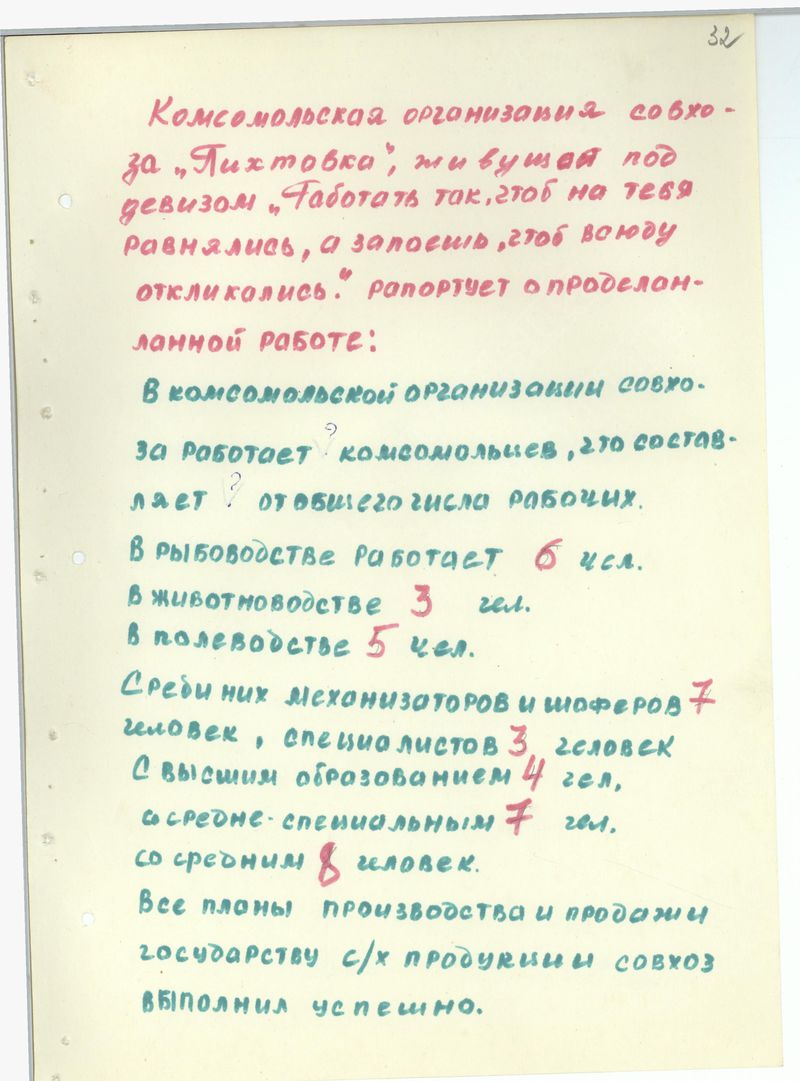 32
Комсомольская организация совхо-
за „Пихтовка“, живущая под
девизом „Работать так, чтоб на тебя
равнялись, а запоешь, чтоб всюду
откликались.“ рапортует о проделан-
ланной работе:
В комсомольской организации совхо-
за работает ? комсомольцев, что состав-
ляет ? от общего числа рабочих.
В рыбоводстве работает 6 чел.
В животноводстве 3 чел.
В полеводстве 5 чел.
Среди них механизаторов и шоферов 7
человек, специалистов 3 человек
С высшим образованием 4 чел,
со средне-специальным 7 чел.
со средним 8 человек.
Все планы производства и продажи
государству с/х продукции совхоз
выполнил успешно.